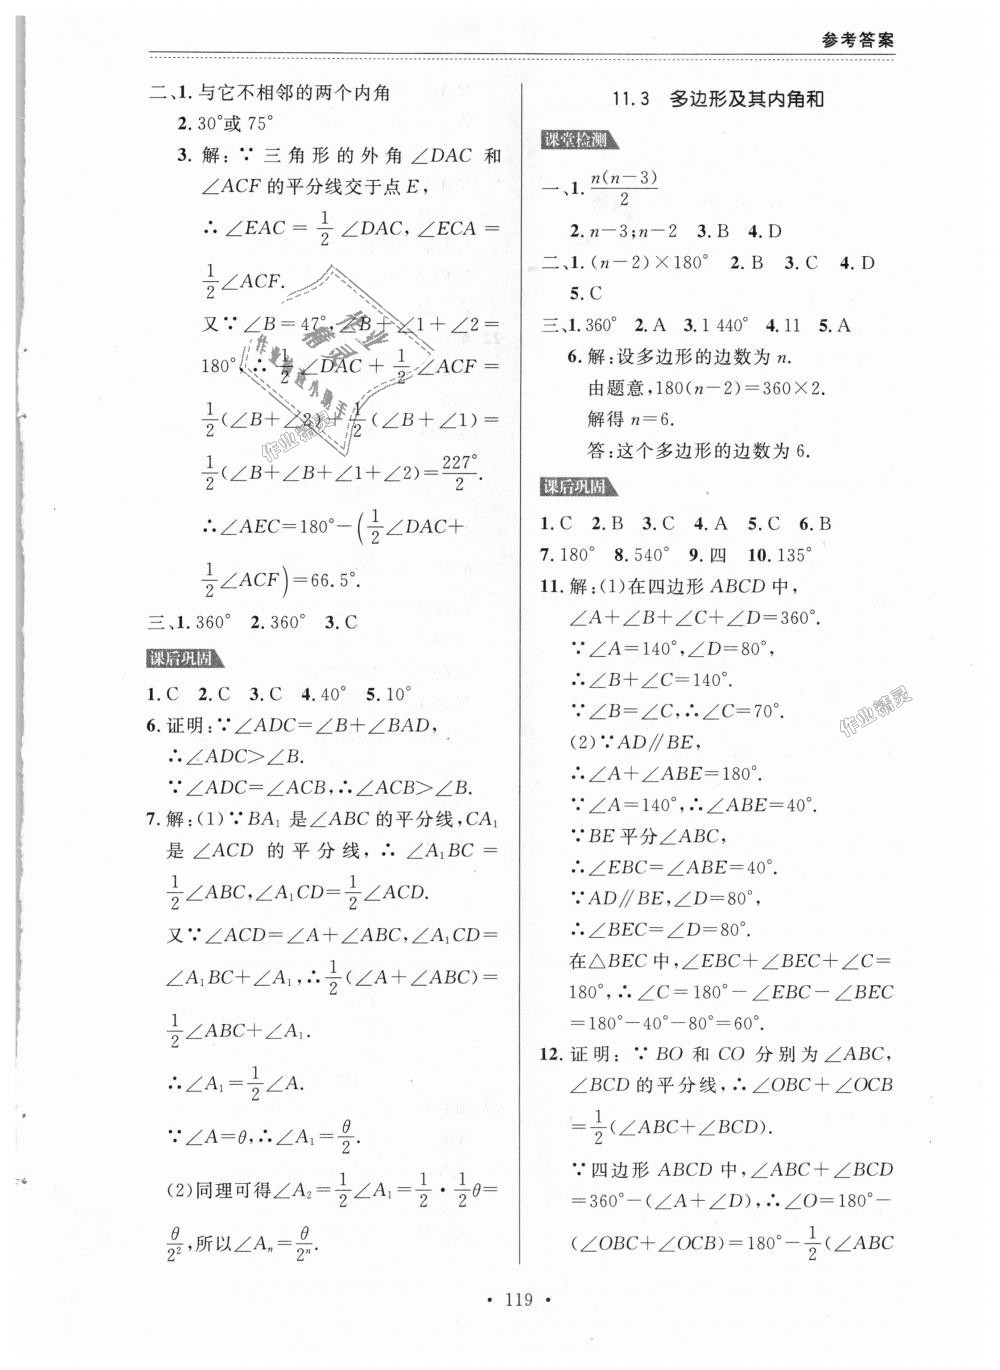 参考答案
二、1. 与它不相邻的两个内角
2. 30°或 75°
3. 解:∵三角形的外角∠DAC 和
∠ACF 的平分线交于点 E,
∴∠EAC = 1/2 ∠DAC,∠ECA =
1/2 ∠ACF.
又∵∠B=47°,∠B+∠1+∠2=
180°,∴ 1/2 ∠DAC + 1/2 ∠ACF =
1/2 (∠B+∠2)+ 1/2 (∠B+∠1)=
1/2 (∠B+∠B+∠1+∠2)= 227°/2.
∴∠AEC=180°-( 1/2 ∠DAC+
1/2 ∠ACF)=66.5°.
三、1. 360° 2. 360° 3. C
课后巩固
1. C 2. C 3. C 4. 40° 5. 10°
6. 证明:∵∠ADC=∠B+∠BAD,
∴∠ADC>∠B.
∵∠ADC=∠ACB,∴∠ACB>∠B.
7. 解:(1)∵BA₁ 是∠ABC 的平分线,CA₁
是∠ACD 的平分线,∴∠A₁BC =
1/2 ∠ABC,∠A₁CD= 1/2 ∠ACD.
又∵∠ACD=∠A+∠ABC,∠A₁CD=
∠A₁BC+∠A₁,∴ 1/2 (∠A+∠ABC)=
1/2 ∠ABC+∠A₁.
∴∠A₁= 1/2 ∠A.
∵∠A=θ,∴∠A₁= θ/2.
(2)同理可得∠A₂= 1/2 ∠A₁= 1/2 · 1/2 θ=
θ/2²,所以∠Aₙ= θ/2ⁿ.
11.3 多边形及其内角和
课堂检测
一、1. n(n-3)/2
2. n-3;n-2 3. B 4. D
二、1. (n-2)×180° 2. B 3. C 4. D
5. C
三、1. 360° 2. A 3. 1 440° 4. 11 5. A
6. 解:设多边形的边数为 n.
由题意,180(n-2)=360×2.
解得 n=6.
答:这个多边形的边数为 6.
课后巩固
1. C 2. B 3. C 4. A 5. C 6. B
7. 180° 8. 540° 9. 四 10. 135°
11. 解:(1)在四边形 ABCD 中,
∠A+∠B+∠C+∠D=360°.
∵∠A=140°,∠D=80°,
∴∠B+∠C=140°.
∵∠B=∠C,∴∠C=70°.
(2)∵AD∥BE,
∴∠A+∠ABE=180°.
∵∠A=140°,∴∠ABE=40°.
∵BE 平分∠ABC,
∴∠EBC=∠ABE=40°.
∵AD∥BE,∠D=80°,
∴∠BEC=∠D=80°.
在△BEC 中,∠EBC+∠BEC+∠C=
180°,∴∠C=180°-∠EBC-∠BEC
=180°-40°-80°=60°.
12. 证明:∵BO 和 CO 分别为∠ABC,
∠BCD 的平分线,∴∠OBC+∠OCB
= 1/2 (∠ABC+∠BCD).
∵四边形 ABCD 中,∠ABC+∠BCD
=360°-(∠A+∠D),∴∠O=180°-
(∠OBC+∠OCB)=180°- 1/2 (∠ABC
• 119 •
作业精灵
作业检查小助手
作业精灵
作业精灵